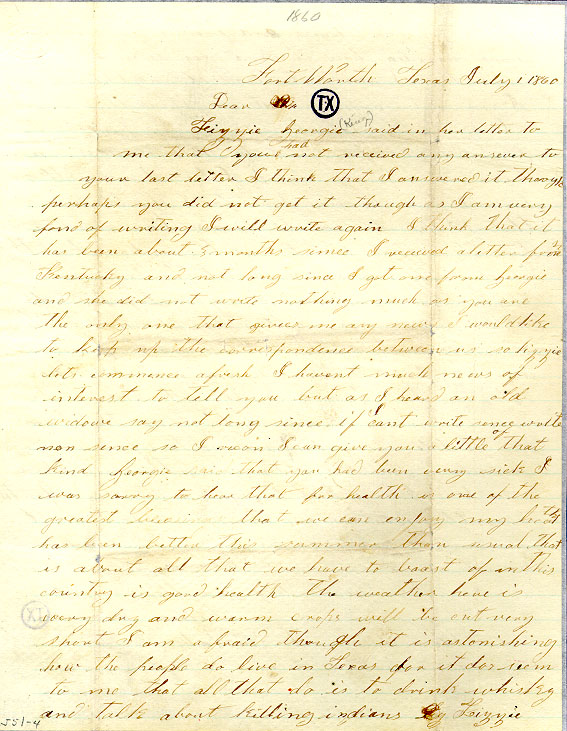 1860
Fort Worth Texas July 1 1860
Dear
TX
Lizzie Georgie (King) said in her letter to
me that you had not received any answer to
your last letter I think that I answered it though
perhaps you did not get it though as I am very
fond of writing I will write again I think that it
has been about 3 months since I received a letter from
Kentucky and not long since I got one from Georgie
and she did not write nothing much as you are
the only one that gives me any news I would like
to keep up the correspondence between us so lizzie
lets commence afresh I havent much news of
interest to tell you but as I heard an old
widower say not long since if I cant write sence write
non sence so I recon I can give you a little of that
kind Georgie said that you had been very sick I
was sorry to hear that for health is one of the
greatest that we can enjoy my health
has been better this summer than usual that
is about all that we have to boast of in this
country is good health the weather here is
very dry and warm crops will be cut very
short I am afraid though it is astonishing
how the people do live in Texas for it does seem
to me that all that do is to drink whiskey
and talk about killing indians Lizzie
TX
551-4